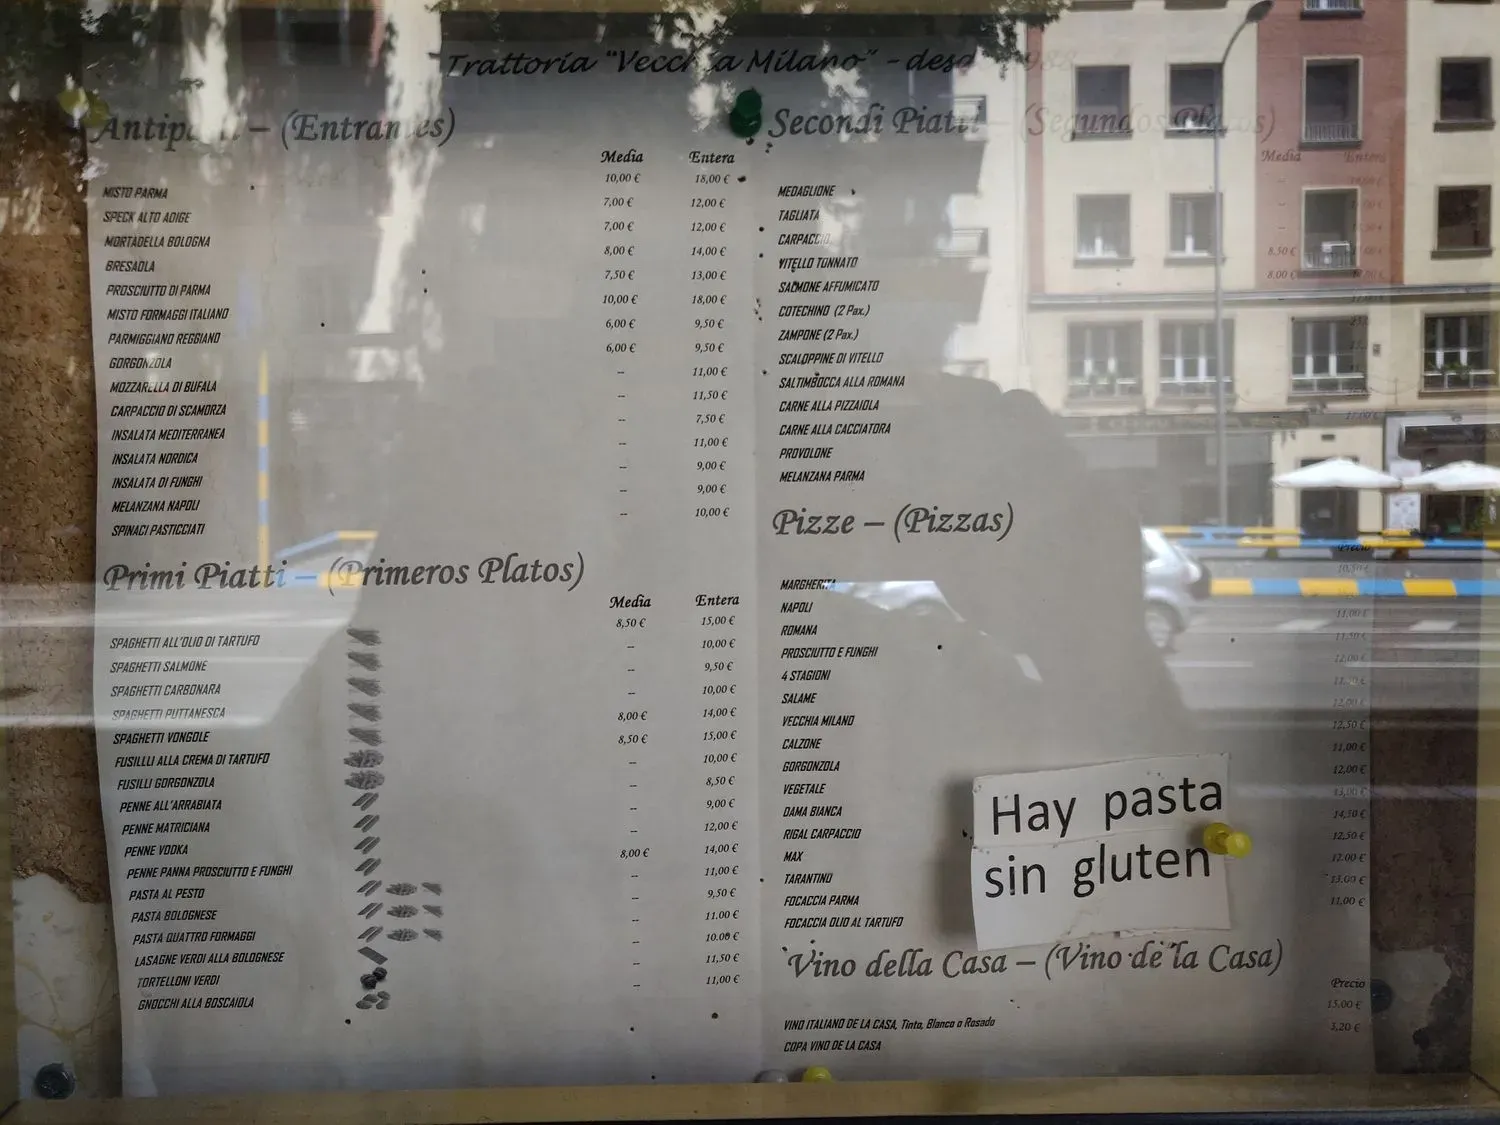 Trattoria "Vecchia Milano" - desd
Antipa – (Entrantes)
Media Entera
MISTO PARMA 10,00 € 18,00 €
SPECK ALTO ADIGE 7,00 € 12,00 €
MORTADELLA BOLOGNA 7,00 € 12,00 €
BRESAOLA 8,00 € 14,00 €
PROSCIUTTO DI PARMA 7,50 € 13,00 €
MISTO FORMAGGI ITALIANO 10,00 € 18,00 €
PARMIGGIANO REGGIANO 6,00 € 9,50 €
GORGONZOLA 6,00 € 9,50 €
MOZZARELLA DI BUFALA -- 11,00 €
CARPACCIO DI SCAMORZA -- 11,50 €
INSALATA MEDITERRANEA 7,50 €
INSALATA NORDICA -- 11,00 €
INSALATA DI FUNGHI -- 9,00 €
MELANZANA NAPOLI -- 9,00 €
SPINACI PASTICCIATI -- 10,00 €
Primi Piatti – (Primeros Platos)
Media Entera
SPAGHETTI ALL'OLIO DI TARTUFO 8,50 € 15,00 €
SPAGHETTI SALMONE -- 10,00 €
SPAGHETTI CARBONARA -- 9,50 €
SPAGHETTI PUTTANESCA -- 10,00 €
SPAGHETTI VONGOLE 8,00 € 14,00 €
FUSILLLI ALLA CREMA DI TARTUFO 8,50 € 15,00 €
FUSILLI GORGONZOLA -- 10,00 €
PENNE ALL'ARRABIATA -- 8,50 €
PENNE MATRICIANA -- 9,00 €
PENNE VODKA -- 12,00 €
PENNE PANNA PROSCIUTTO E FUNGHI 8,00 € 14,00 €
PASTA AL PESTO -- 11,00 €
PASTA BOLOGNESE -- 9,50 €
PASTA QUATTRO FORMAGGI -- 11.00 €
LASAGNE VERDI ALLA BOLOGNESE -- 10.00 €
TORTELLONI VERDI -- 11,50 €
GNOCCHI ALLA BOSCAIOLA -- 11,00 €
Secondi Piatti – (Segundos Platos)
Media Entera
MEDAGLIONE
TAGLIATA
CARPACCIO
VITELLO TONNATO 8,50 €
SALMONE AFFUMICATO 8,00 €
COTECHINO (2 Pax.)
ZAMPONE (2 Pax.)
SCALOPPINE DI VITELLO
SALTIMBOCCA ALLA ROMANA
CARNE ALLA PIZZAIOLA
CARNE ALLA CACCIATORA
PROVOLONE
MELANZANA PARMA
Pizze – (Pizzas)
Precio
MARGHERITA
NAPOLI
ROMANA 11,00 €
PROSCIUTTO E FUNGHI 11,50 €
4 STAGIONI 12,00 €
SALAME
VECCHIA MILANO 12,00 €
CALZONE 12,50 €
GORGONZOLA 11,00 €
VEGETALE 12,00 €
DAMA BIANCA 13,00 €
RIGAL CARPACCIO 14,50 €
MAX 12,50 €
TARANTINO 12.00 €
FOCACCIA PARMA 13.00 €
FOCACCIA OLIO AL TARTUFO 11,00 €
Hay pasta
sin gluten
Vino della Casa – (Vino de la Casa)
Precio
VINO ITALIANO DE LA CASA, Tinto, Blanco o Rosado 15,00 €
COPA VINO DE LA CASA 3,20 €